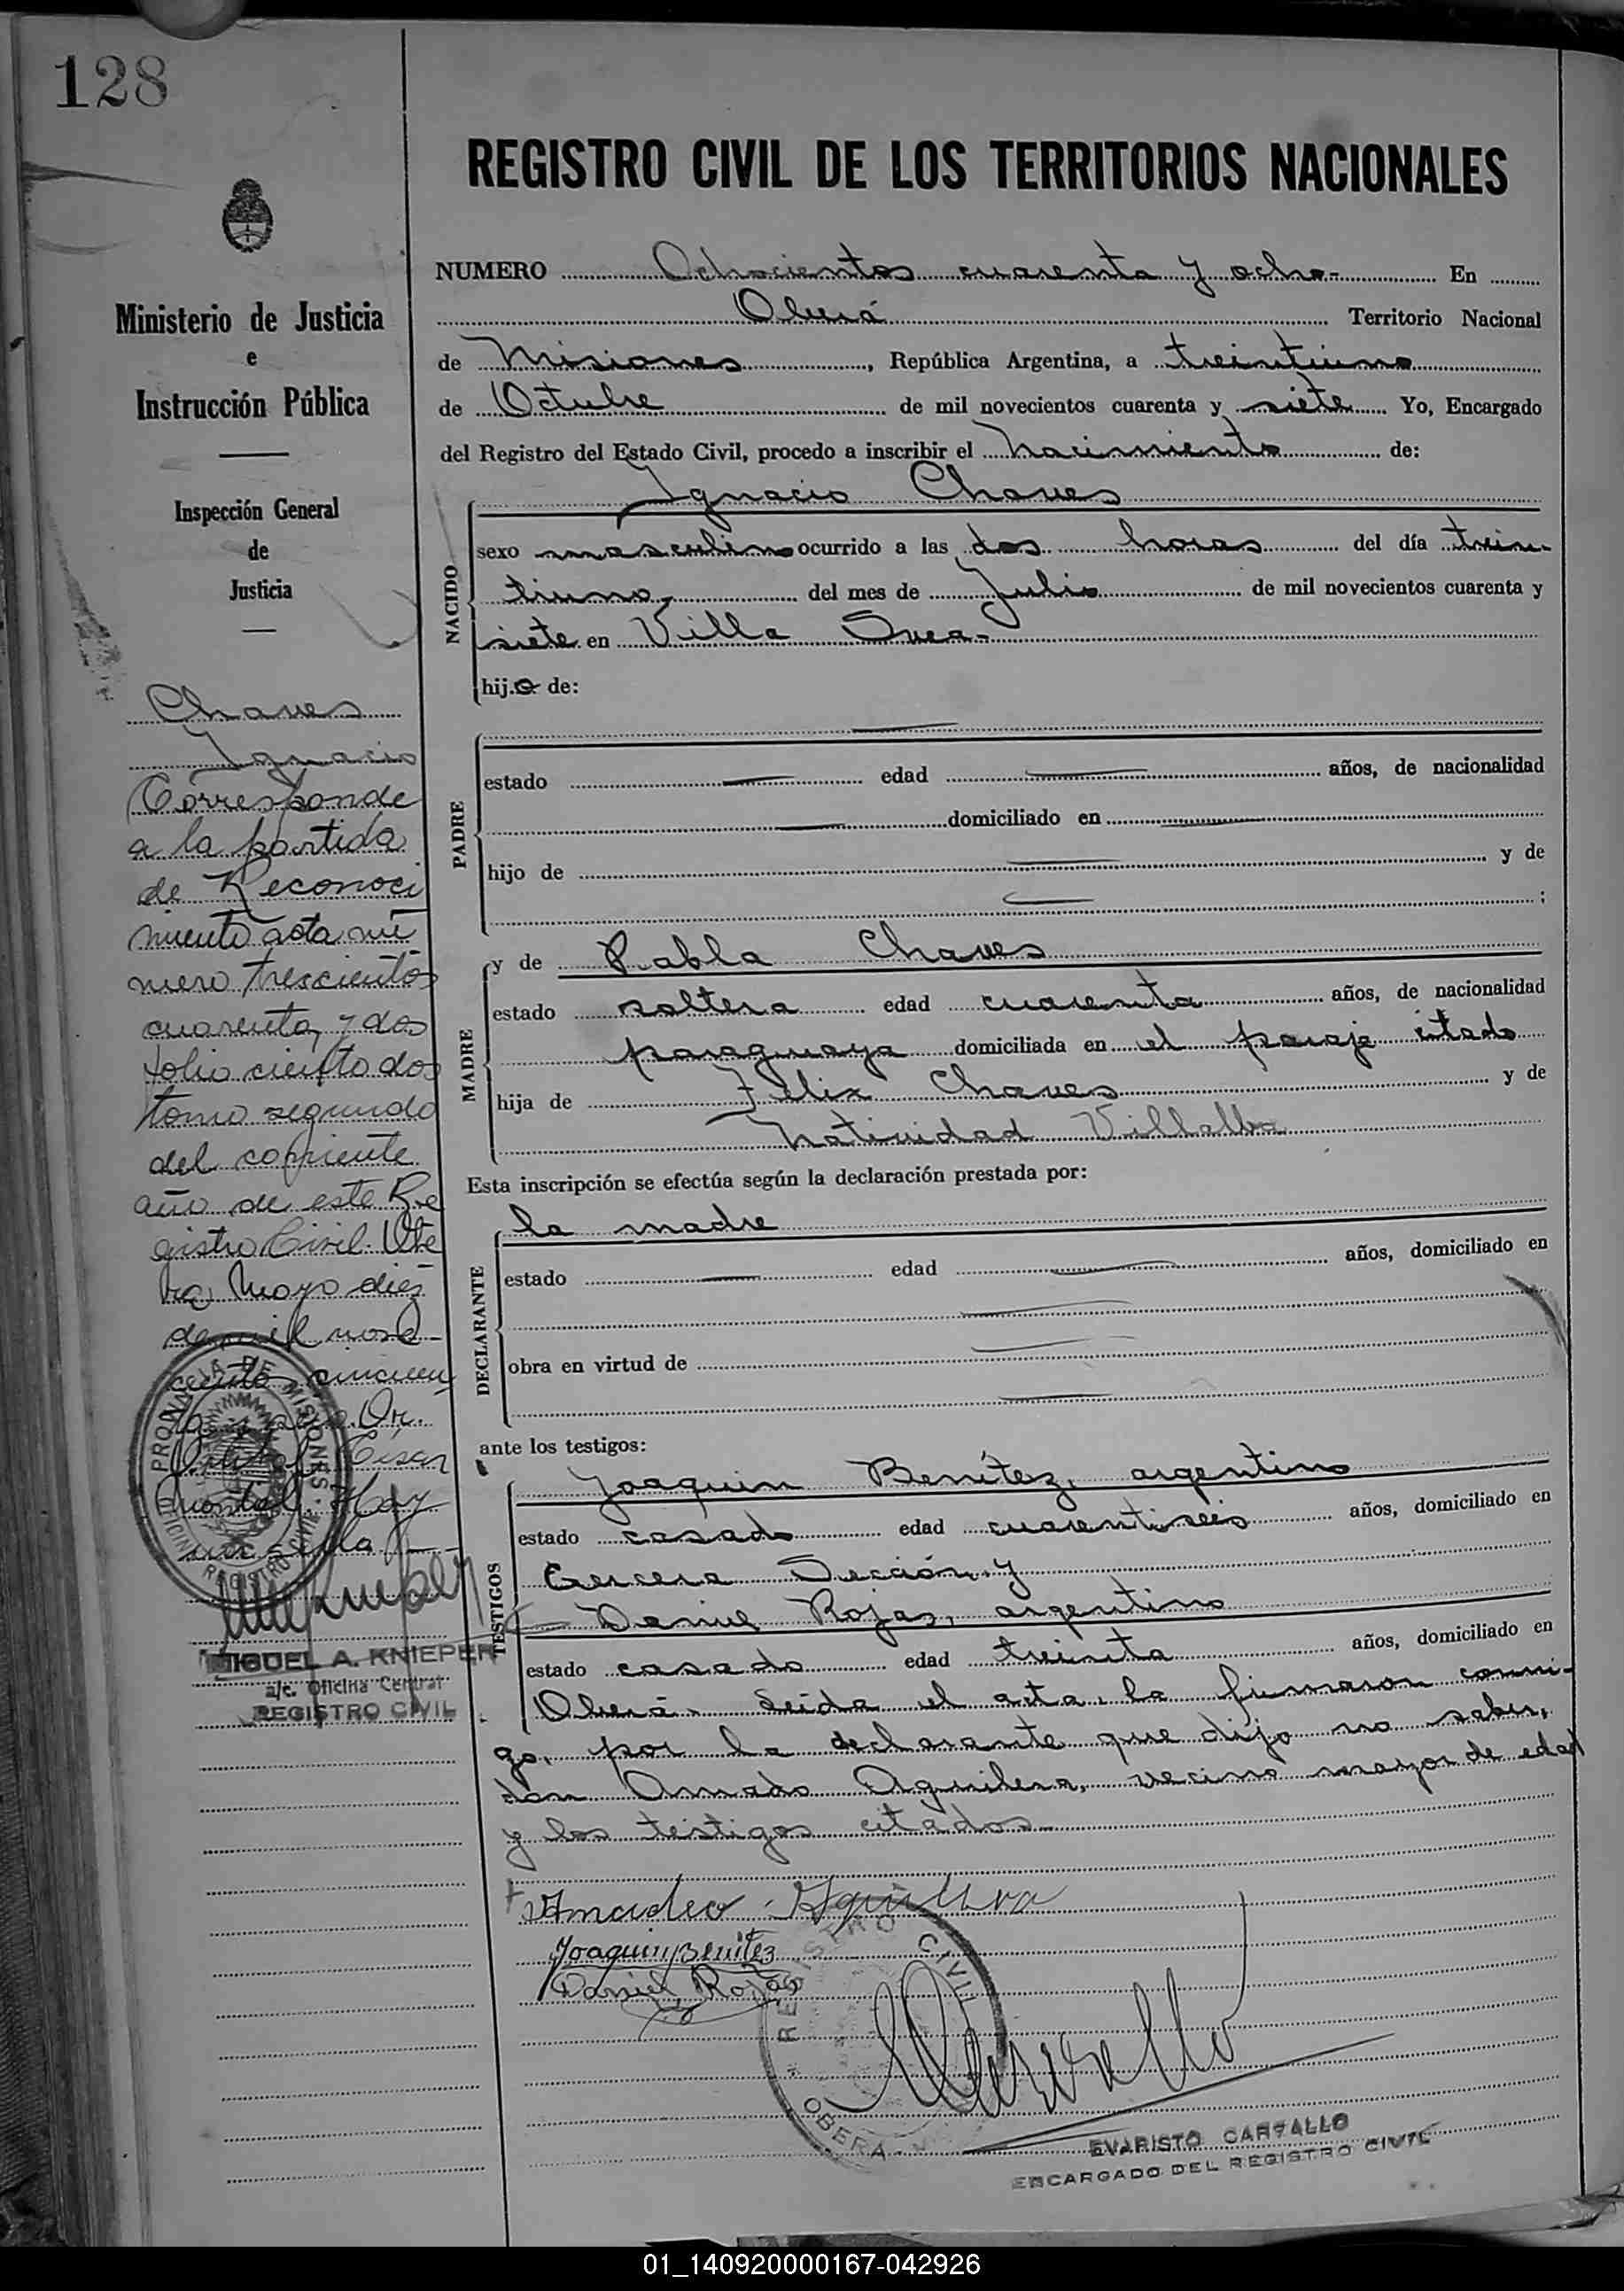 128
REGISTRO CIVIL DE LOS TERRITORIOS NACIONALES
Ministerio de Justicia
e
Instrucción Pública
Inspección General
de
Justicia
Chaves
Ignacio
Corresponde
a la partida
de Reconoci
miento acta nú
mero trescientos
cuarenta y dos
folio ciento dos
tomo segundo
del corriente
año de este Re
gistro Civil. Obe
ra, Mayo diez
de mil nove-
cientos cincuen
Hay
un sello
MIGUEL A. KNIEPER
a/c. Oficina Central
REGISTRO CIVIL
PROVINCIA DE MISIONES
OFICINA REGISTRO CIVIL
NUMERO Ochocientos cuarenta y ocho.- En
Oberá Territorio Nacional
de Misiones, República Argentina, a treintiuno
de Octubre de mil novecientos cuarenta y siete Yo, Encargado
del Registro del Estado Civil, procedo a inscribir el nacimiento de:
NACIDO
Ignacio Chaves
sexo masculino ocurrido a las dos horas del día trein-
tiuno, del mes de Julio de mil novecientos cuarenta y
siete en Villa Svea-
hijo de:
PADRE
estado edad años, de nacionalidad
domiciliado en
hijo de y de
;
MADRE
y de Pabla Chaves
estado soltera edad cuarenta años, de nacionalidad
paraguaya domiciliada en el paraje citado
hija de Félix Chaves y de
Natividad Villalba
Esta inscripción se efectúa según la declaración prestada por:
DECLARANTE
la madre
estado edad años, domiciliado en
obra en virtud de
ante los testigos:
TESTIGOS
Joaquin Benítez, argentino
estado casado edad cuarentiseis años, domiciliado en
Tercera Sección y
Daniel Rojas, argentino
estado casado edad treinta años, domiciliado en
Oberá- Leida el acta, la firmaron conmi-
go, por la declarante que dijo no saber,
don Amado Aguilera, vecino mayor de edad
y los testigos citados-
Amadeo Aguilera
Joaquin Benítez
Daniel Rojas
REGISTRO CIVIL
OBERA
EVARISTO CARVALLO
ENCARGADO DEL REGISTRO CIVIL
01_140920000167-042926